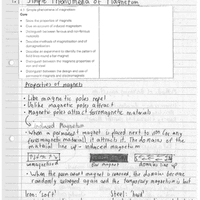 Simple Phenomena of Magnetism
4.1 Simple phenomena of magnetism
Core
• State the properties of magnets
• Give an account of induced magnetism
• Distinguish between ferrous and non-ferrous materials
• Describe methods of magnetisation and of demagnetisation
• Describe an experiment to identify the pattern of field lines round a bar magnet
• Distinguish between the magnetic properties of iron and steel
• Distinguish between the design and use of permanent magnets and electromagnets
Properties of magnets
• Like magnetic poles repel
• Unlike magnetic poles attract
• Magnetic poles attract ferromagnetic materials
Induced Magnetism
• When a permanent magnet is placed next to (or for any
ferromagnetic material) it attracts it. The domains of the
material line up - induced magnetism
unmagnetised
bar magnet
domains line up
• When the permanent magnet is removed, the domains become
randomly arranged again and the temporary magnetism is lost
Iron: 'soft'
Steel: 'hard'